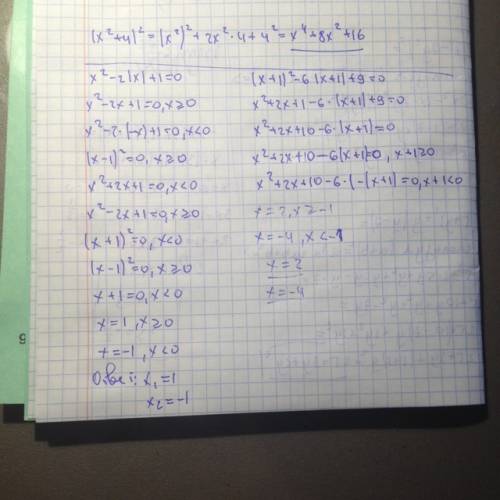 (x²+4)² = (x²)² + 2x²·4 + 4² = x⁴+8x²+16
x²-2|x|+1=0
x²-2x+1=0, x≥0
x²-2·(-x)+1=0, x<0
(x-1)²=0, x≥0
x²+2x+1=0, x<0
x²-2x+1=0, x≥0
(x+1)²=0, x<0
(x-1)²=0, x≥0
x+1=0, x<0
x=1, x≥0
x=-1, x<0
Ответ: x₁=1
x₂=-1
(x+1)²-6|x+1|+9=0
x²+2x+1-6·|x+1|+9=0
x²+2x+10-6·|x+1|=0
x²+2x+10-6(x+1)=0, x+1≥0
x²+2x+10-6·(-(x+1)=0, x+1<0
x=2, x≥-1
x=-4, x<-1
x=2
x=-4
5